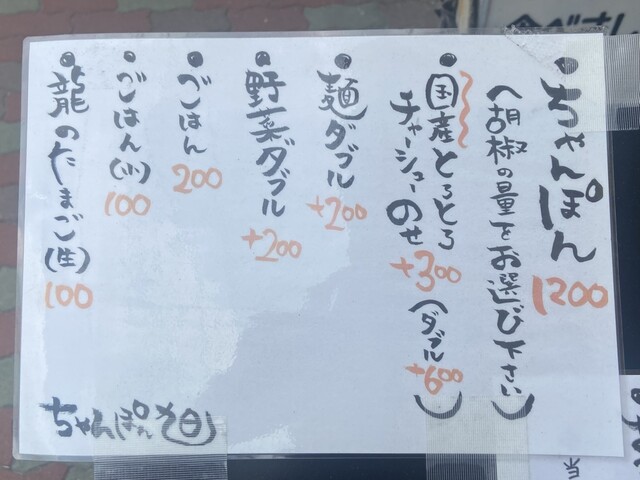 ちゃんぽん 1200
(胡椒の量をお選び下さい)
国産とろとろ
チャーシューのせ +300 (ダブル +600)
麺ダブル +200
野菜ダブル +200
ごはん 200
ごはん(小) 100
龍のたまご(生) 100
ちゃんぽん 旭
食べさし
当